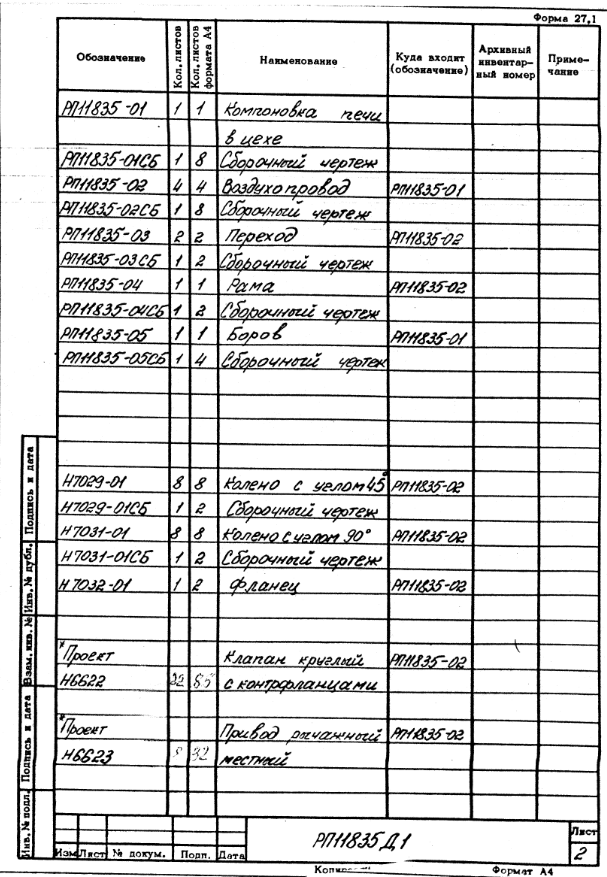 Форма 27,1
Обозначение Кол. листов Кол. листов формата А4 Наименование Куда входит (обозначение) Архивный инвентарный номер Примечание
РП11835-01 1 1 Компоновка печи
в цехе
РП11835-01СБ 1 8 Сборочный чертеж
РП11835-02 4 4 Воздухопровод РП11835-01
РП11835-02СБ 1 8 Сборочный чертеж
РП11835-03 2 2 Переход РП11835-02
РП11835-03СБ 1 2 Сборочный чертеж
РП11835-04 1 1 Рама РП11835-02
РП11835-04СБ 1 2 Сборочный чертеж
РП11835-05 1 1 Боров РП11835-01
РП11835-05СБ 1 4 Сборочный чертеж
Н7029-01 8 8 Колено с углом 45° РП11835-02
Н7029-01СБ 1 2 Сборочный чертеж
Н7031-01 8 8 Колено с углом 90° РП11835-02
Н7031-01СБ 1 2 Сборочный чертеж
Н7032-01 1 2 Фланец РП11835-02
*Проект Клапан круглый РП11835-02
Н6622 с контрфланцами
*Проект Привод рычажный РП11835-02
Н6623 32 местный
Инв. № подл. Подпись и дата Взам. инв. № Инв. № дубл. Подпись и дата
РП11835Д1
Лист
2
Изм Лист № докум. Подп. Дата
Формат А4